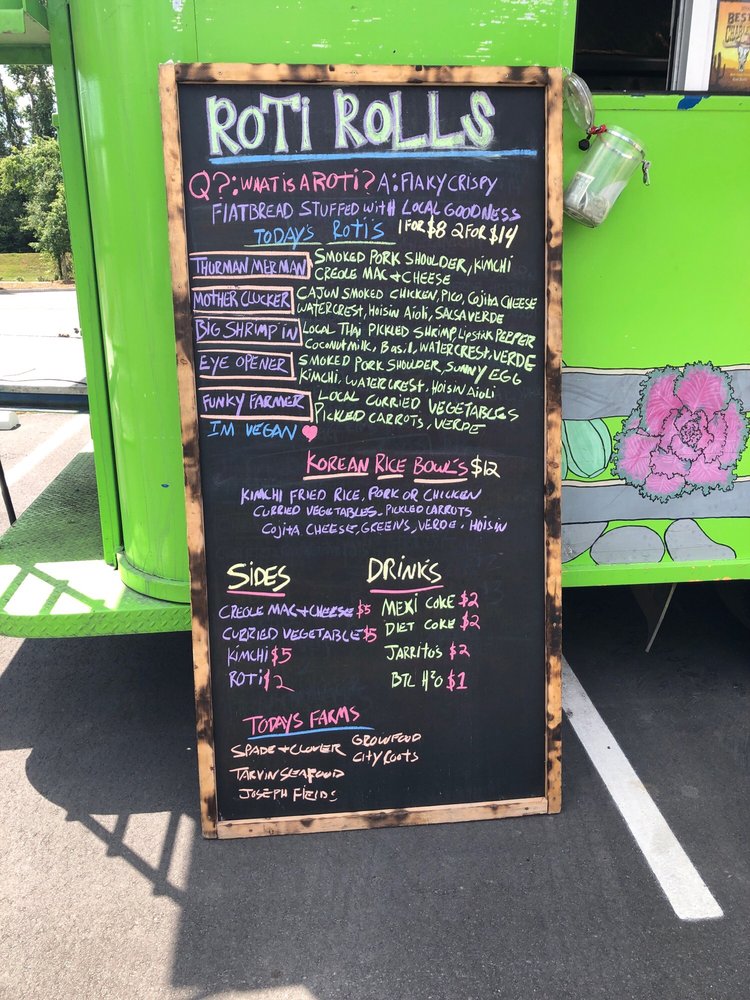 ROTI ROLLS
Q?: WHAT IS A ROTI? A: FLAKY CRISPY
FLATBREAD STUFFED WITH LOCAL GOODNESS
TODAY'S ROTI'S 1 FOR $8 2 FOR $14
THURMAN MERMAN SMOKED PORK SHOULDER, KIMCHI
CREOLE MAC + CHEESE
MOTHER CLUCKER CAJUN SMOKED CHICKEN, PICO, COJITA CHEESE
WATERCREST, HOISIN AIOLI, SALSA VERDE
BIG SHRIMP'IN LOCAL THAI PICKLED SHRIMP, LIPSTICK PEEPER
COCONUT MILK, BASIL, WATERCREST, VERDE
EYE OPENER SMOKED PORK SHOULDER, SUNNY EGG
KIMCHI, WATERCREST, HOISIN AIOLI
FUNKY FARMER LOCAL CURRIED VEGETABLES
PICKLED CARROTS, VERDE
IM VEGAN
KOREAN RICE BOWL'S $12
KIMCHI FRIED RICE, PORK OR CHICKEN
CURRIED VEGETABLES, PICKLED CARROTS
COJITA CHEESE, GREENS, VERDE, HOISIN
SIDES
CREOLE MAC + CHEESE $5
CURRIED VEGETABLE $5
KIMCHI $5
ROTI $2
DRINK'S
MEXI COKE $2
DIET COKE $2
JARRITO'S $2
BTL H²O $1
TODAYS FARMS
SPADE + CLOVER GROWFOOD
CITY ROOTS
TARVIN SEAFOOD
JOSEPH FIELDS
BEST